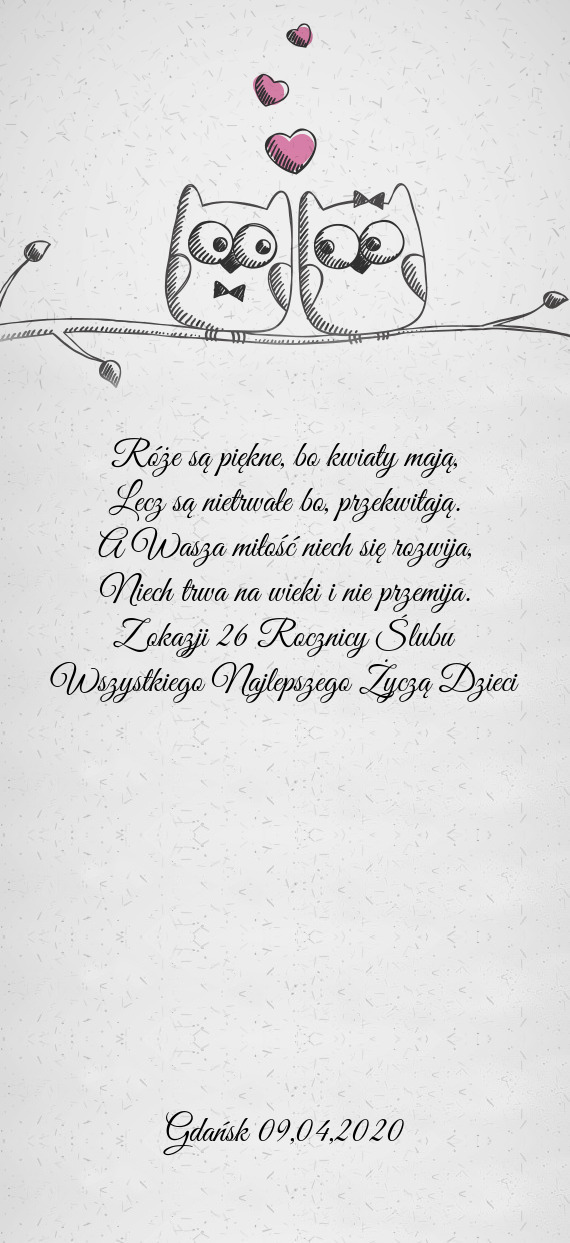 Róże są piękne, bo kwiaty mają,
Lecz są nietrwałe bo, przekwitają.
A Wasza miłość niech się rozwija,
Niech trwa na wieki i nie przemija.
Zokazji 26 Rocznicy Ślubu
Wszystkiego Najlepszego Życzą Dzieci
Gdańsk 09,04,2020